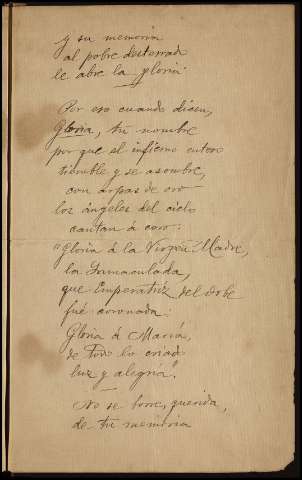 y su memoria
al pobre desterrado
le abre la gloria
Por eso cuando dicen,
Gloria, tu nombre
por que el infierno entero
tiemble y se asombre,
con arpas de oro
los ángeles del cielo
cantan á coro:
"Gloria á la Virgen Madre,
la Inmaculada,
que Emperatríz del orbe
fué coronada:
Gloria á María,
de Todo lo criado
luz y alegria".
No se borre, querida,
de tu memoria